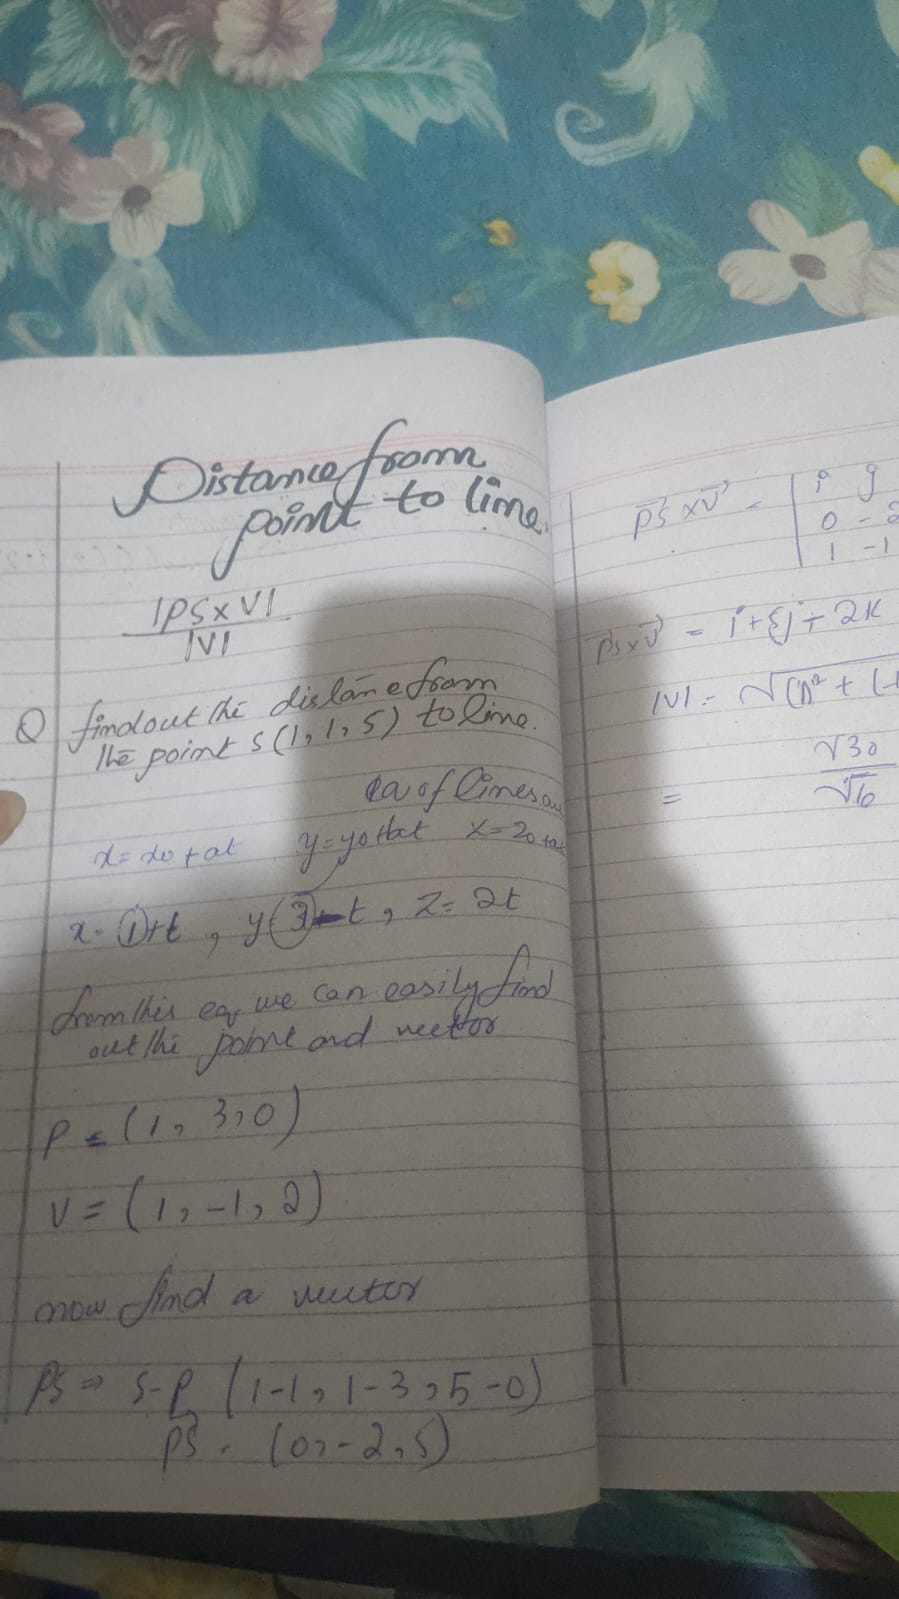 Distance from
point to line.
|PS x V|
|V|
Q find out the distane from
the point s (1, 1, 5) to line.
eq of lines are
x = x0 + at y = y0 + bt
x = 1 + t, y(3 - t, z = 2t
from this eq we can easily find
out the point and vector
P = (1, 3, 0)
V = (1, -1, 2)
now find a vector
PS => S-P (1-1, 1-3, 5-0)
PS = (0, -2, 5)
PS x V = | i j
0 -2
1 -1
PS x V = i + 5j + 2K
|V| = √(1)² + (-1
= √30
√6